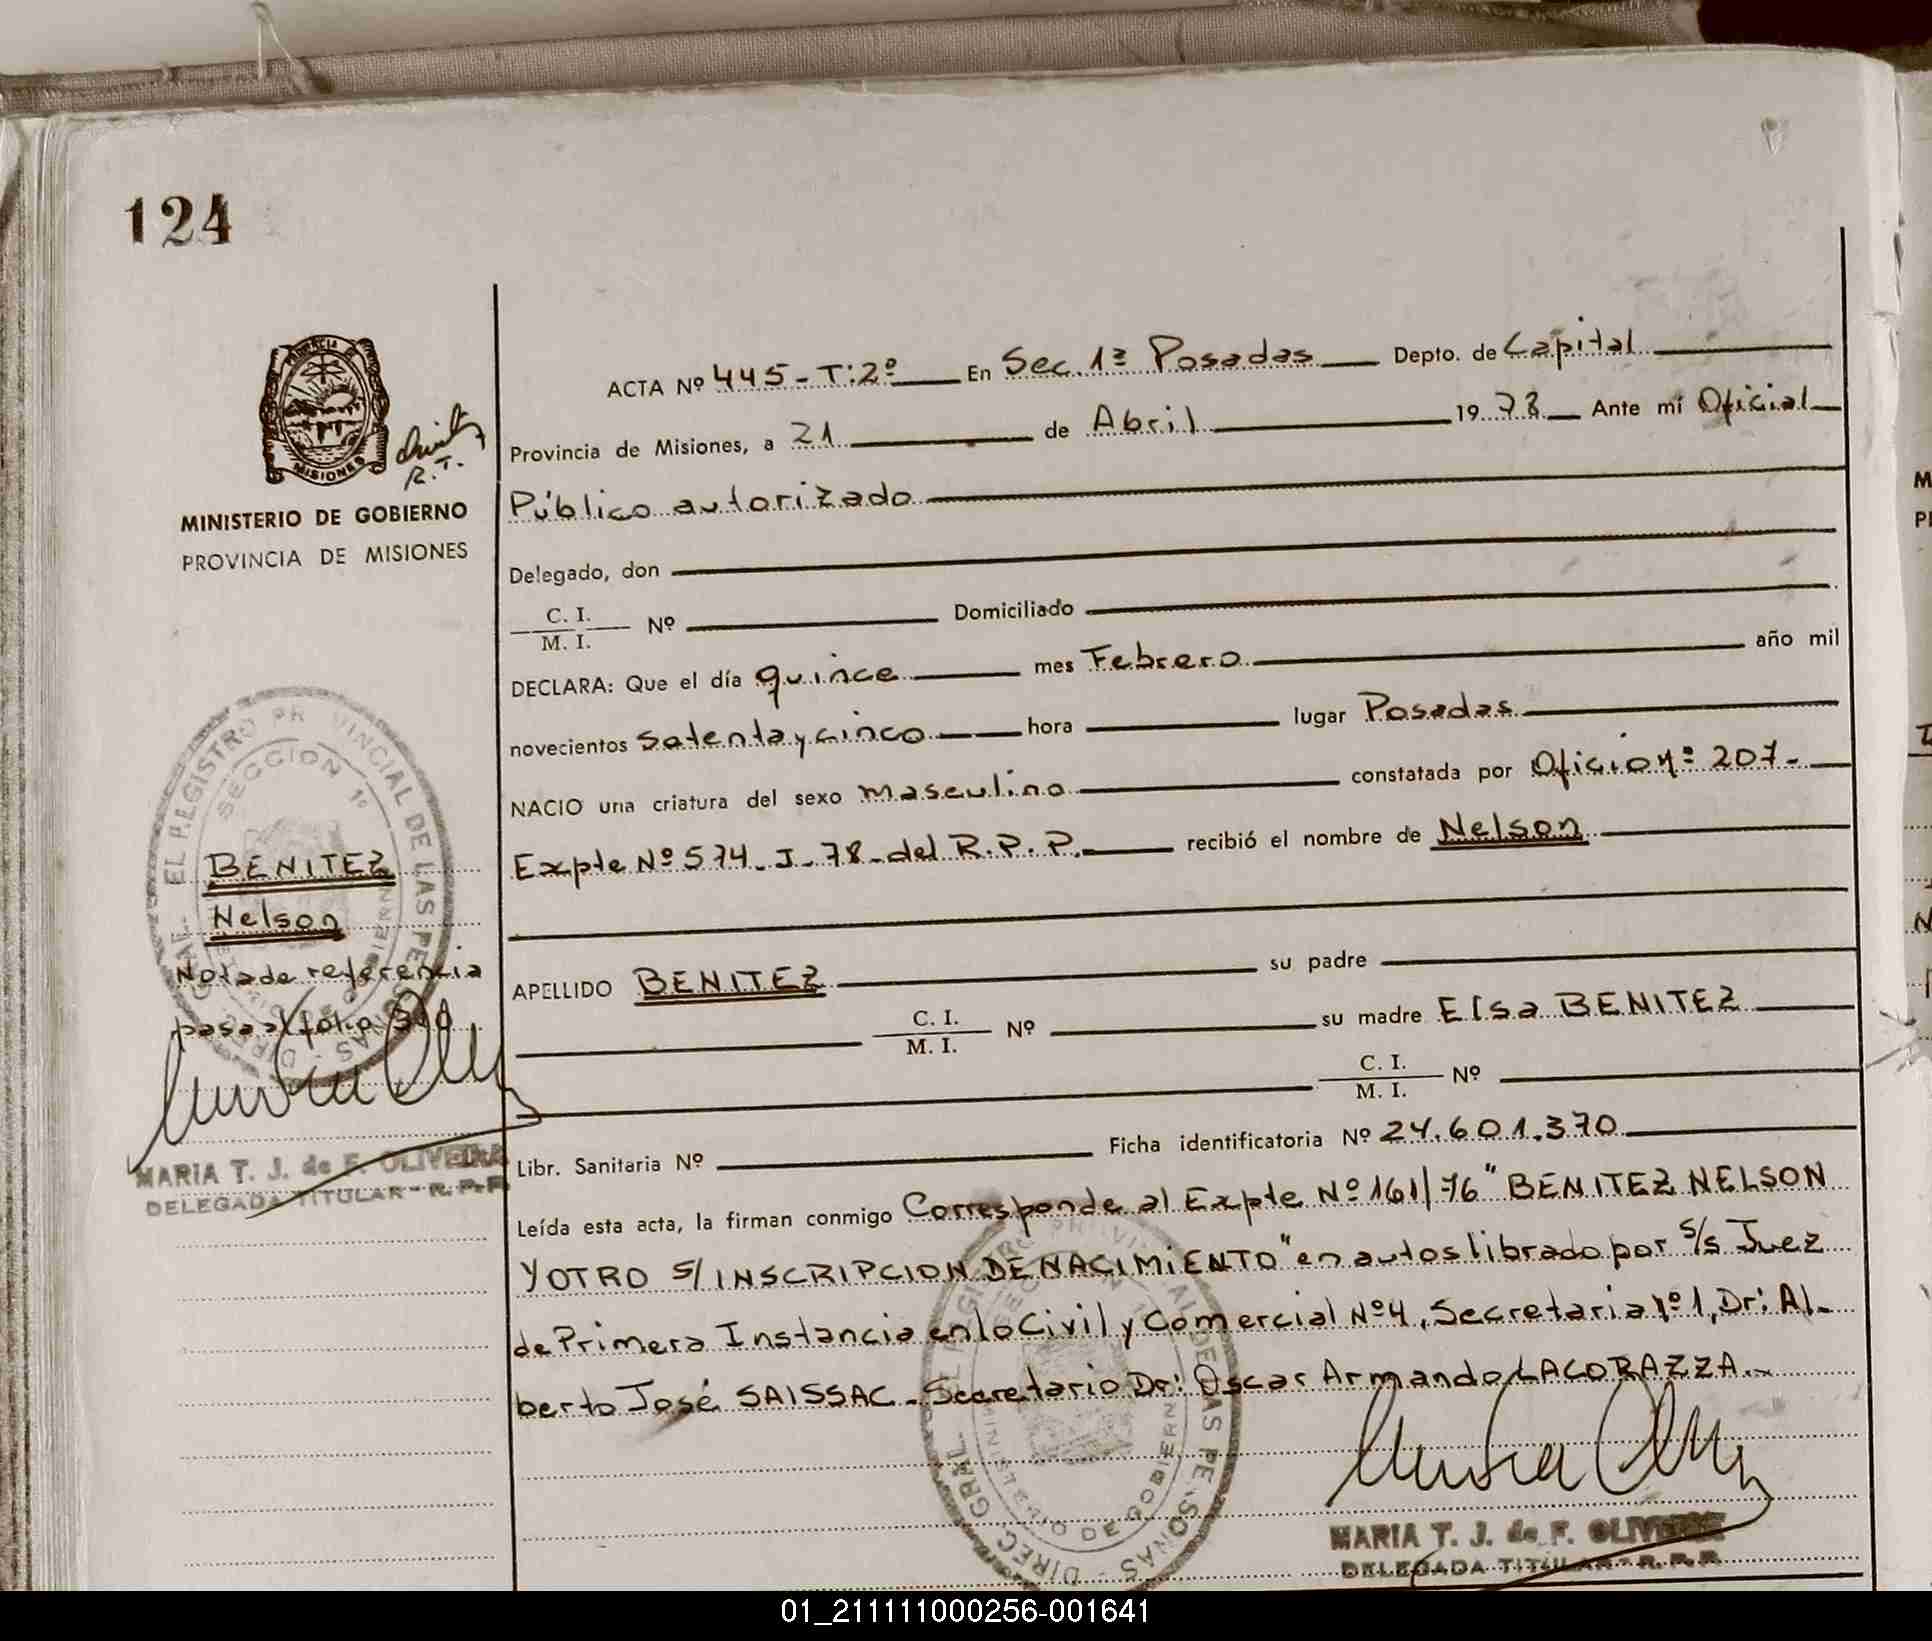 124
PROVINCIA DE
MISIONES
R. T.
MINISTERIO DE GOBIERNO
PROVINCIA DE MISIONES
ACTA Nº 445-T:2º En Sec. 1ª Posadas Depto. de Capital
Provincia de Misiones, a 21 de Abril 1978 Ante mí Oficial
Público autorizado
Delegado, don
C. I.
M. I. Nº Domiciliado
DECLARA: Que el día quince mes Febrero año mil
novecientos setenta y cinco hora lugar Posadas
NACIO una criatura del sexo masculino constatada por Oficio Nº 207-
Expte Nº 574-J-78-del R.P.P. recibió el nombre de Nelson
APELLIDO BENITEZ su padre
C. I.
M. I. Nº su madre Elsa BENITEZ
C. I.
M. I. Nº
Libr. Sanitaria Nº Ficha identificatoria Nº 24.601.370
Leída esta acta, la firman conmigo Corresponde al Expte Nº 161/76 "BENITEZ NELSON
Y OTRO S/ INSCRIPCION DE NACIMIENTO" en autos librado por S/s Juez
de Primera Instancia en lo Civil y Comercial Nº 4, Secretaria Nº 1, Dr: Al-
berto José SAISSAC - Secretario Dr: Oscar Armando LACORAZZA.-
MARIA T. J. de F. OLIVEIRA
DELEGADA TITULAR - R. P. P.
BENITEZ
Nelson
Nota de referencia
pasa al folio
MARIA T. J. de F. OLIVEIRA
DELEGADA TITULAR - R. P. P.
DIREC. GRAL. DEL REGISTRO PROVINCIAL DE LAS PERSONAS
SECCION 1º
MINISTERIO DE GOBIERNO
DIREC. GRAL. DEL REGISTRO PROVINCIAL DE LAS PERSONAS
MINISTERIO DE GOBIERNO
01_211111000256-001641